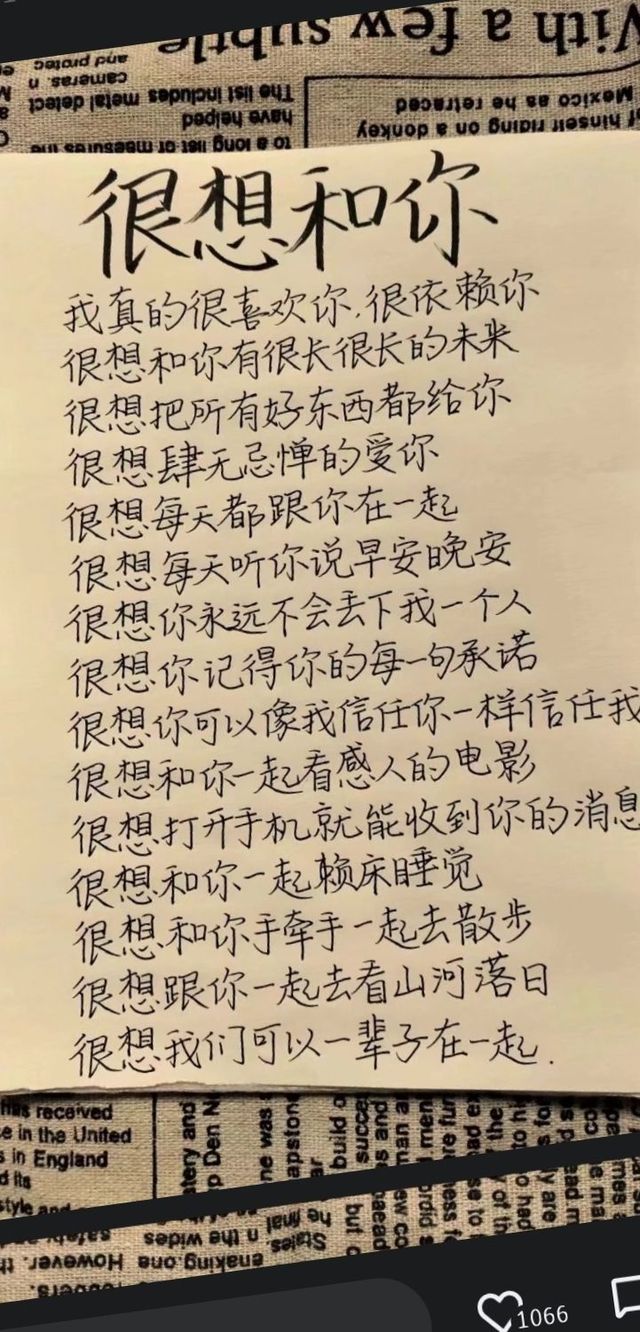 With a few subtle
and protec
cameras. n
The list includes metal detect
have helped
to a long list of measures the
Mexico as he retraced
f himself riding on a donkey
很想和你
我真的很喜欢你,很依赖你
很想和你有很长很长的未来
很想把所有好东西都给你
很想肆无忌惮的爱你
很想每天都跟你在一起
很想每天听你说早安晚安
很想你永远不会丢下我一个人
很想你记得你的每一句承诺
很想你可以像我信任你一样信任我
很想和你一起看感人的电影
很想打开手机就能收到你的消息
很想和你一起赖床睡觉
很想和你手牵手一起去散步
很想跟你一起去看山河落日
很想我们可以一辈子在一起.
has received
e in the United
s in England
d its
style and
1066